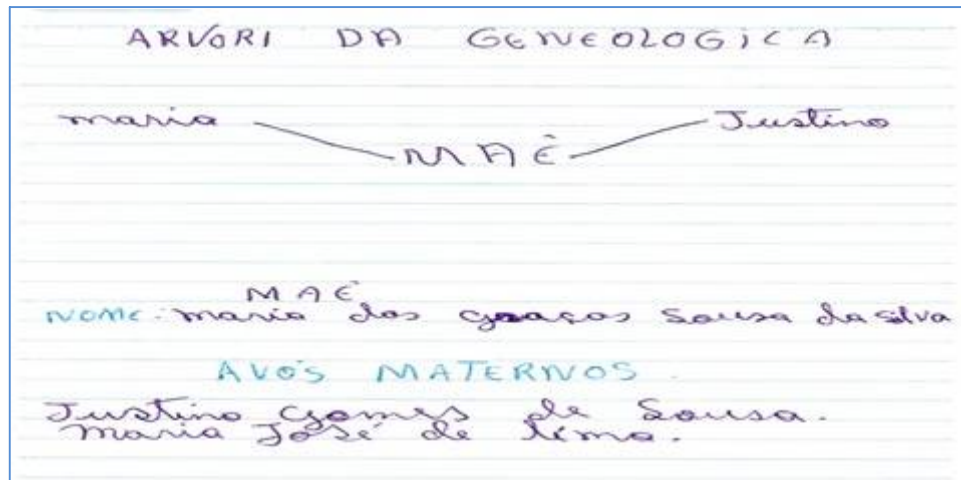 ARVORI DA GENEOLOGiCA
maria Justino
MAÊ
MAÊ
NOME: maria das graças Sousa da silva
AVÓS MATERNOS.
Justino Gomes de Sousa.
maria José de lima.